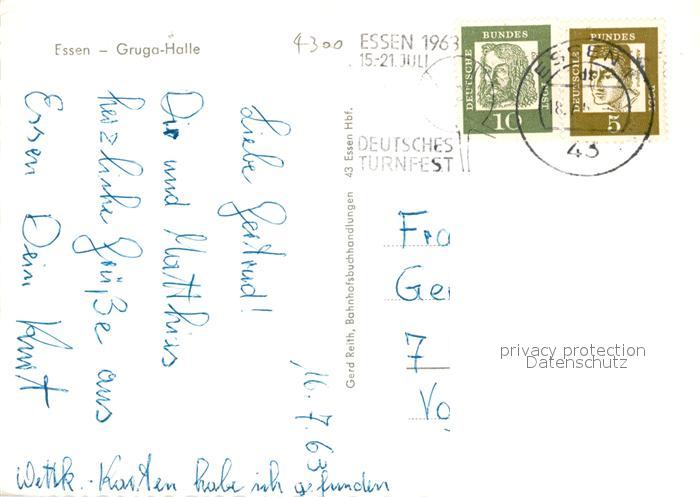 Essen – Gruga-Halle
4300
ESSEN 1963
15.-21. JULI
DEUTSCHES
TURNFEST
DEUTSCHE
BUNDES
10
DEUTSCHE
BUNDES
5
ESSEN
43
Liebe Gertrud!
Dir und Matthias
herzliche Grüße aus
Essen Dein Kurt
16.7.63
Wettk.-Karten habe ich gefunden
Gerd Reith, Bahnhofsbuchhandlungen 43 Essen Hbf.
Fra
Ger
7
Vo
privacy protection
Datenschutz